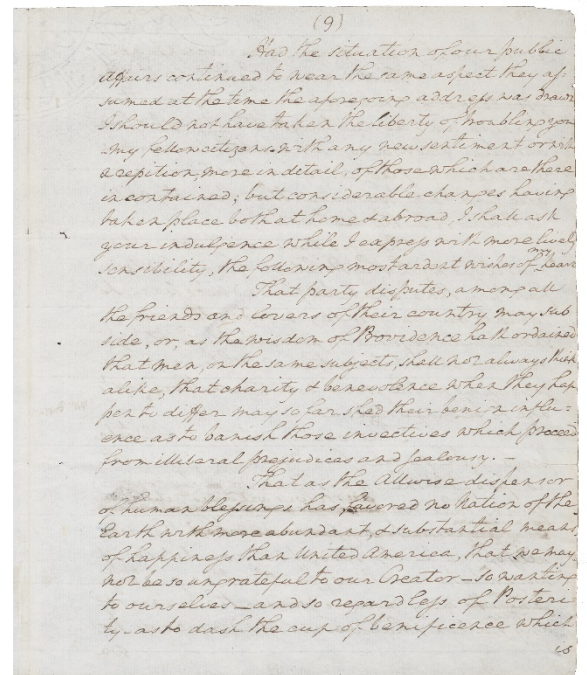 (9)
Had the situation of our public
affairs continued to wear the same aspect they as-
sumed at the time the aforegoing address was drawn
I should not have taken the liberty of troubling you
my fellow citizens with any new sentiment or with
a repition, more in detail, of those which are there
in contained; but considerable changes having
taken place both at home & abroad, I shall ask
your indulgence while I express with more lively
sensibility, the following most ardent wishes of my heart
That party disputes, among all
the friends and lovers of their country may sub
side, or, as the wisdom of Providence hath ordained
that men, on the same subjects, shall not always think
alike, that charity & benevolence when they hap
pen to differ may so far shed their benign influ=
ence as to banish those invectives which proceed
from illiberal prejudices and jealousy. —
That as the Allwise dispensor
of human blessings has favored no Nation of the
Earth with more abundant, & substantial means
of happiness than United America, that we may
not be so ungrateful to our Creator — so wanting
to ourselves — and so regardless of Posteri
ty — as to dash the cup of benificence which
is